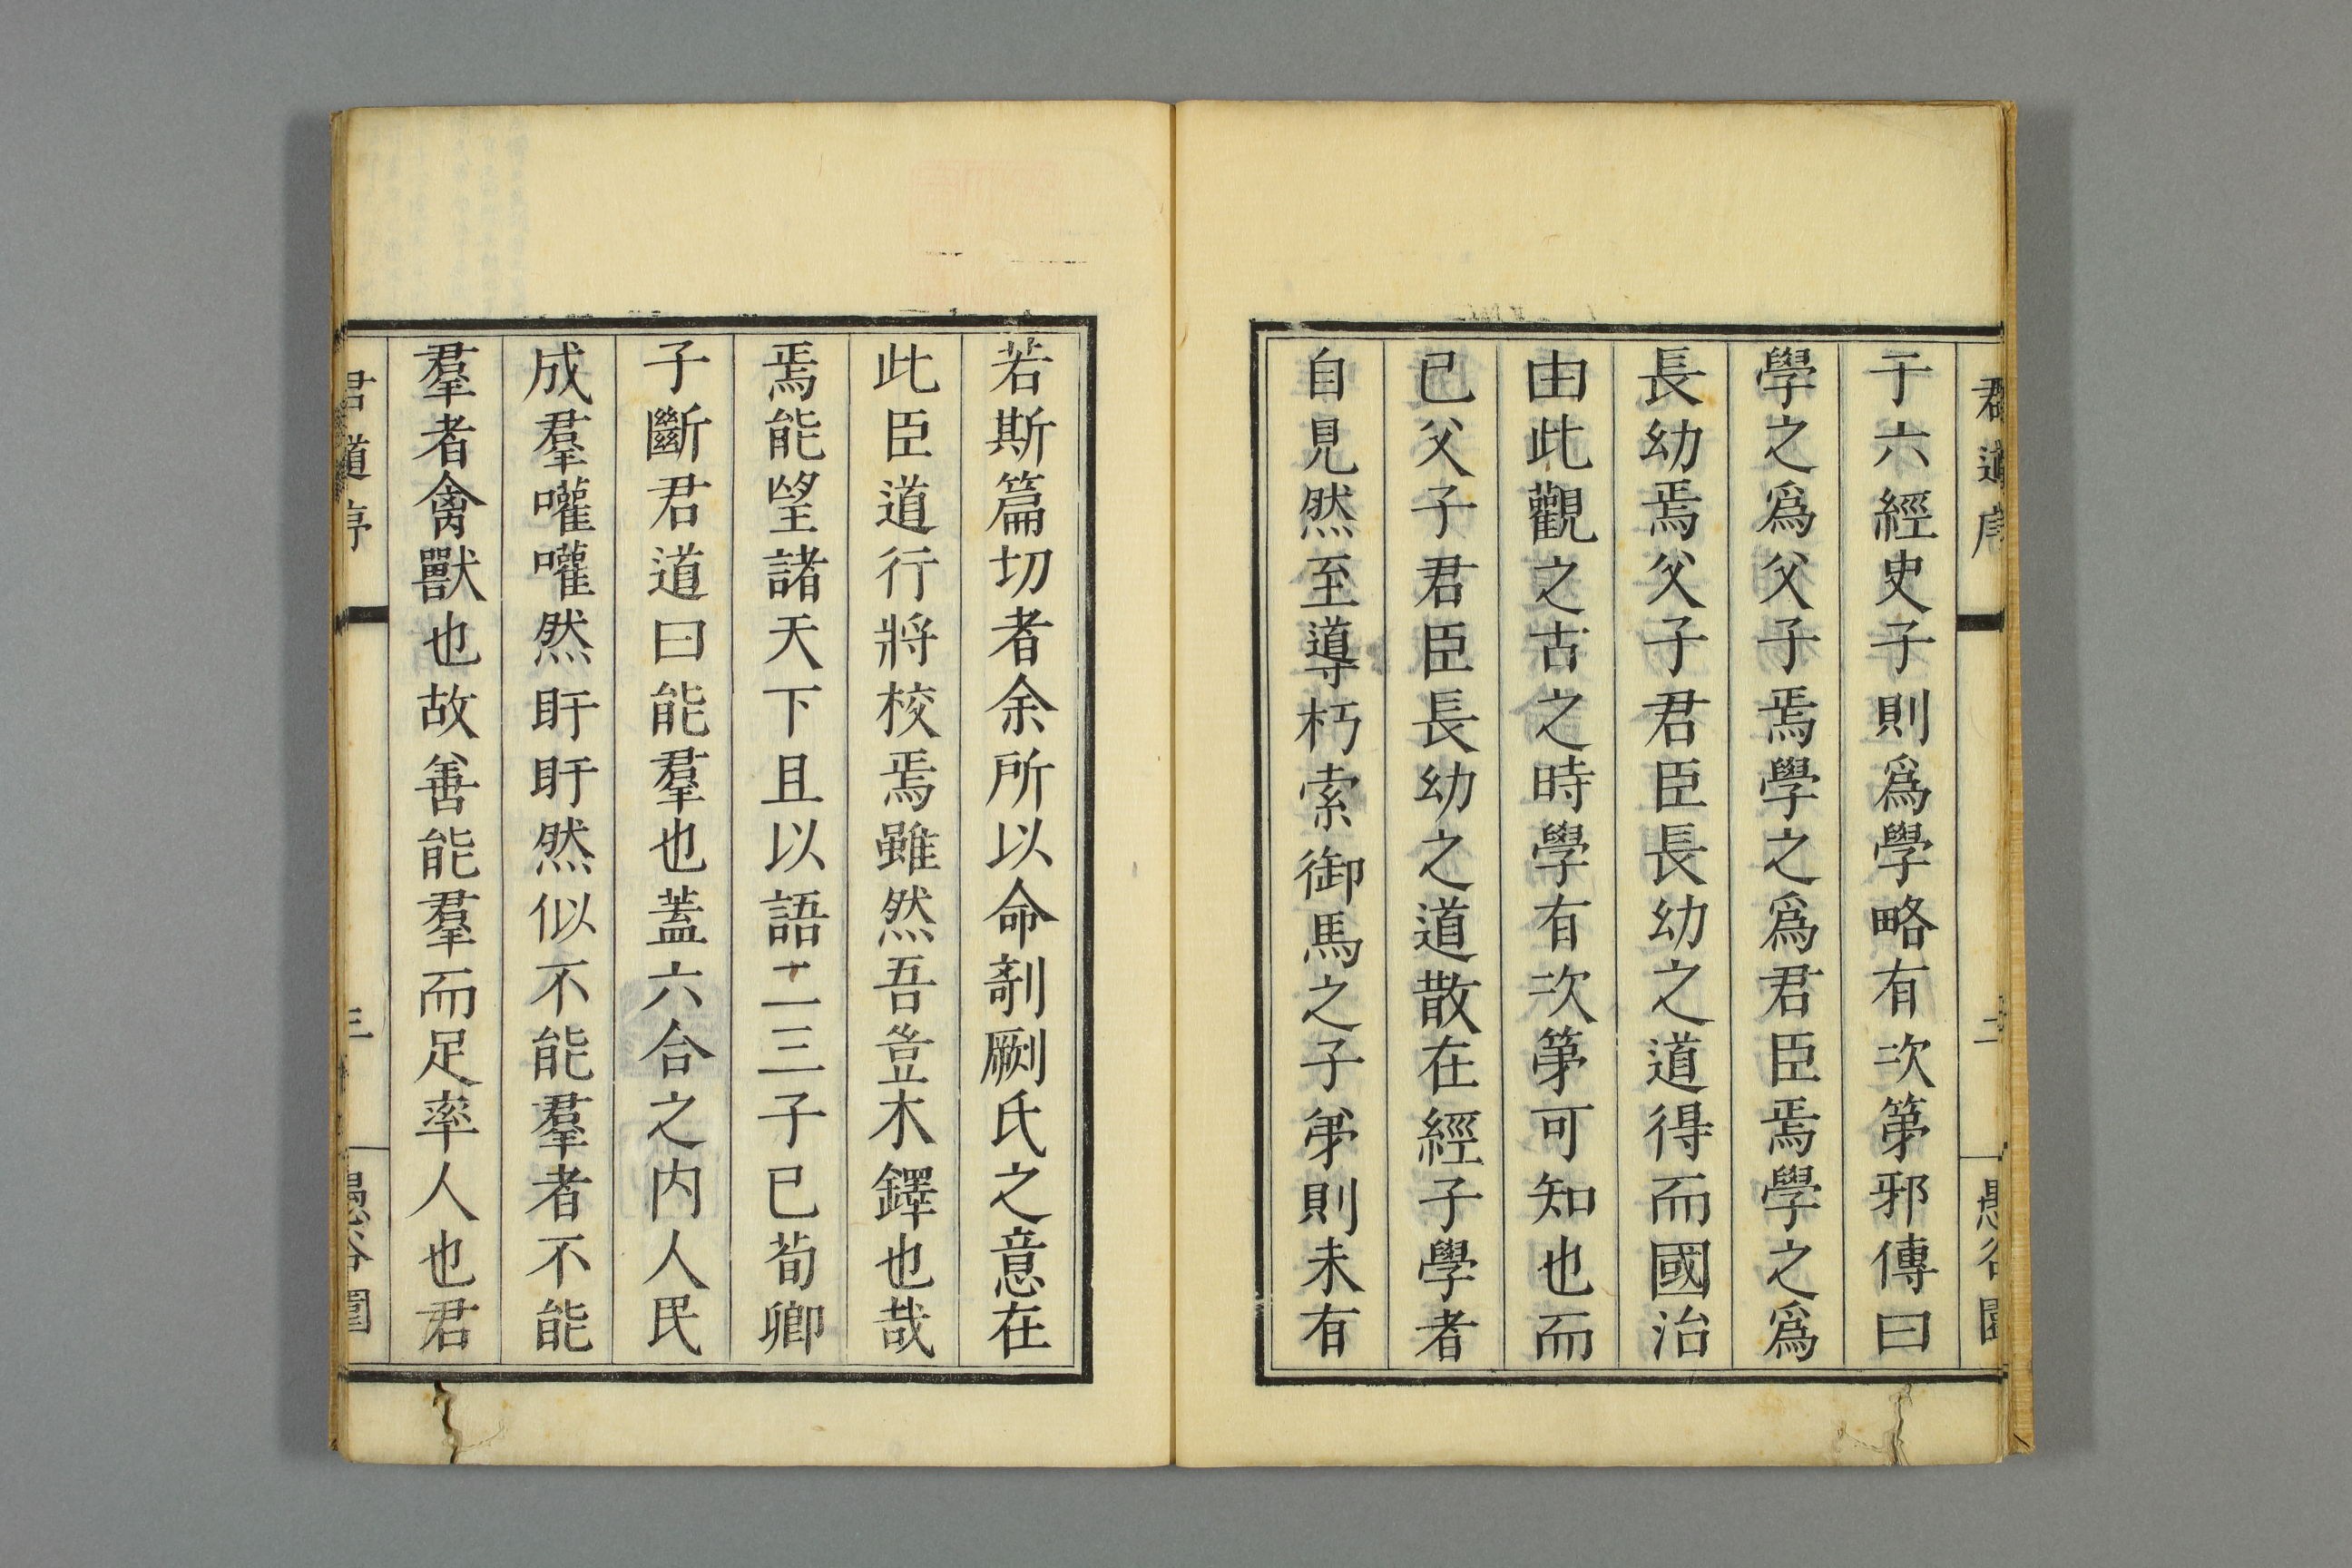 君道序
二
愚谷園
于六經史子則爲學略有次第邪傳曰
學之爲父子焉學之爲君臣焉學之爲
長幼焉父子君臣長幼之道得而國治
由此觀之古之時學有次第可知也而
已父子君臣長幼之道散在經子學者
自見然至導朽索御馬之子弟則未有
若斯篇切者余所以命剞劂氏之意在
此臣道行將校焉雖然吾豈木鐸也哉
焉能望諸天下且以語二三子已荀卿
子斷君道曰能羣也蓋六合之内人民
成羣嚾嚾然盱盱然似不能羣者不能
羣者禽獸也故善能羣而足率人也君
君道序
三
愚谷園